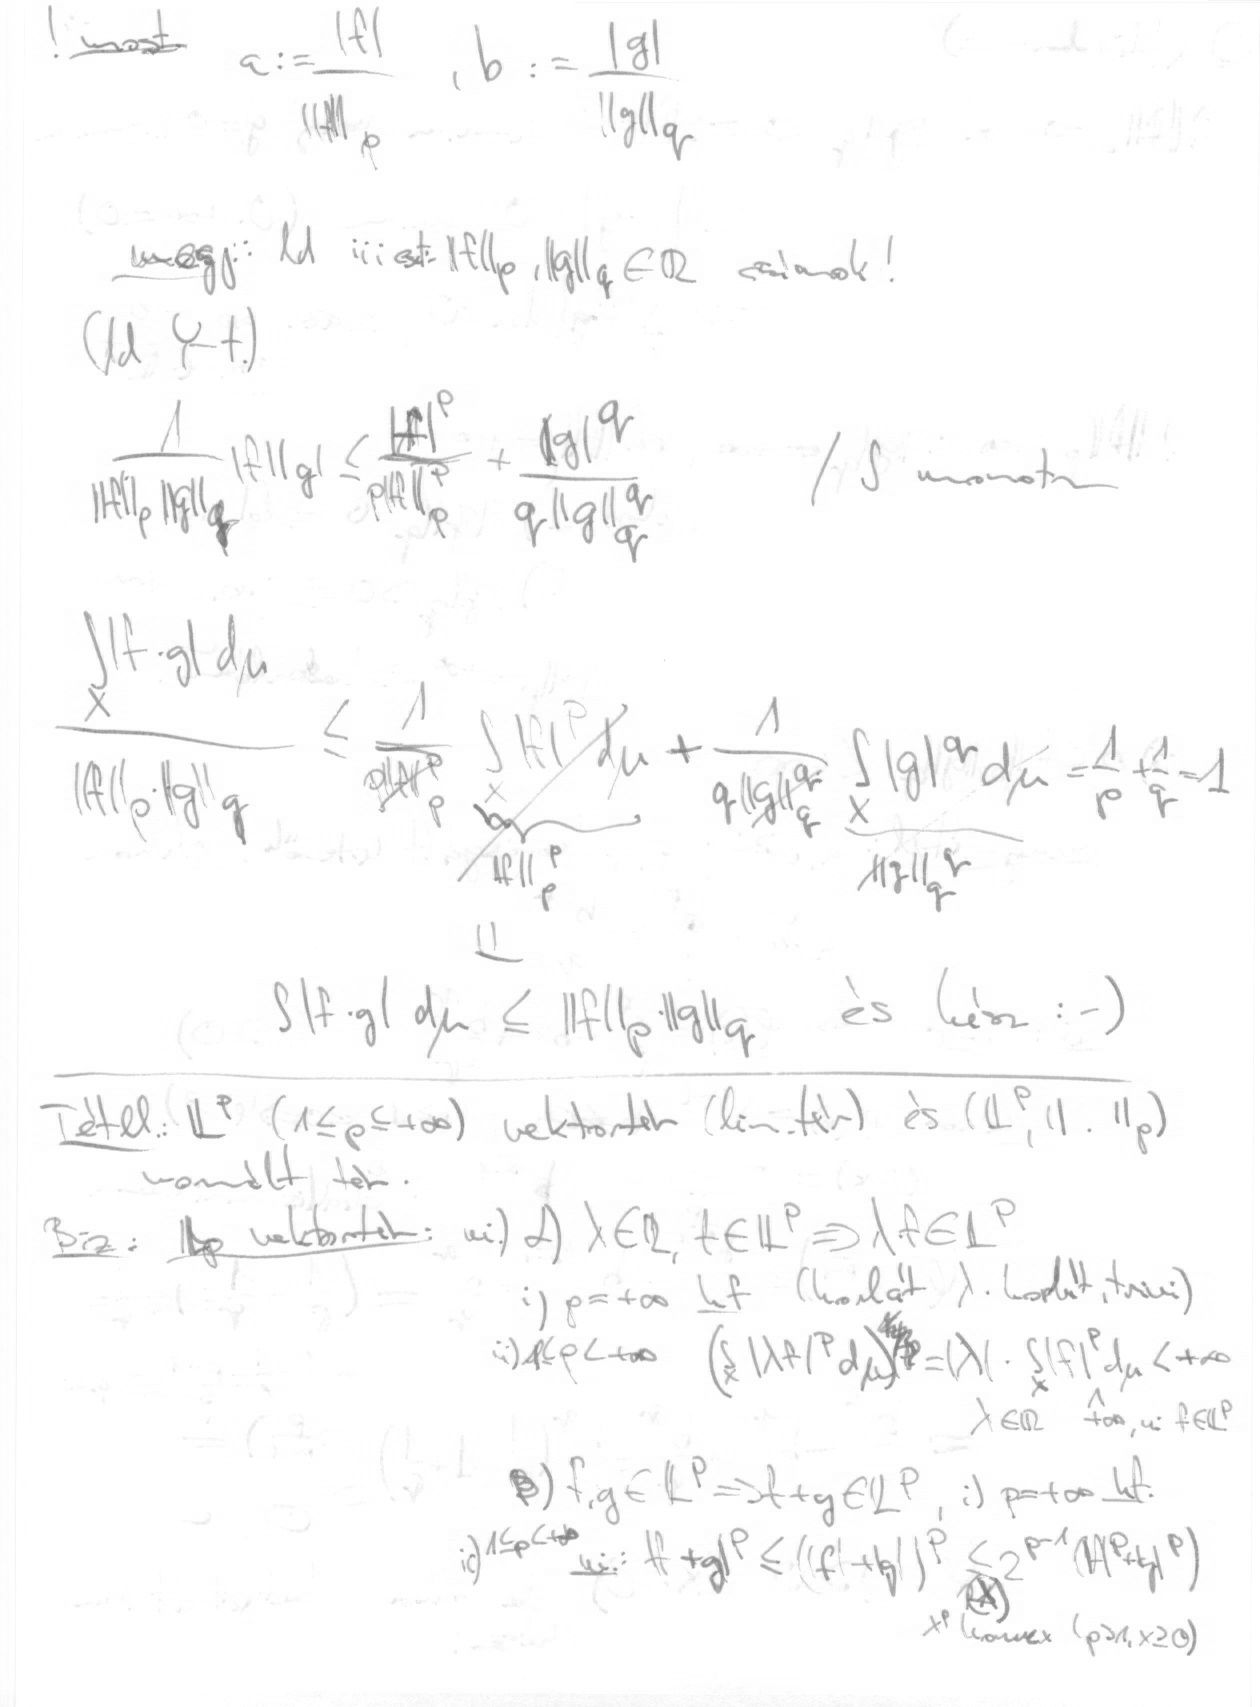 ! most a := |f| / ||f||_p , b := |g| / ||g||_q
megj.: ld iii est. ||f||_p, ||g||_q ∈ ℝ számok!
(ld Y-t.)
1 / (||f||_p ||g||_q) |f||g| ≤ |f|^p / (p||f||_p^p) + |g|^q / (q||g||_q^q) / ∫ monoton
∫_X |f·g| dμ / (||f||_p·||g||_q) ≤ 1 / (p||f||_p^p) ∫_X |f|^p dμ + 1 / (q||g||_q^q) ∫_X |g|^q dμ = 1/p + 1/q = 1
||f||_p^p ||g||_q^q
⇓
∫|f·g| dμ ≤ ||f||_p·||g||_q és kész :-)
Tétel: 𝕃^p (1≤p≤+∞) vektortér (lin. tér) és (𝕃^p, ||.||_p)
normált tér.
Biz: 𝕃p vektortér: mi.) α) λ∈ℝ, f∈𝕃^p ⇒ λf∈𝕃^p
i) p=+∞ hf (korlát λ·korlát, trivi)
ii) 1≤p<+∞ (∫_X |λf|^p dμ) = |λ|·∫_X |f|^p dμ < +∞
λ∈ℝ +∞, mi f∈𝕃^p
β) f,g∈𝕃^p ⇒ f+g∈𝕃^p, i) p=+∞ hf.
ii) 1≤p<+∞ mi: |f+g|^p ≤ (|f|+|g|)^p ≤ 2^{p-1} (|f|^p+|g|^p)
(*)
x^p konvex (p≥1, x≥0)